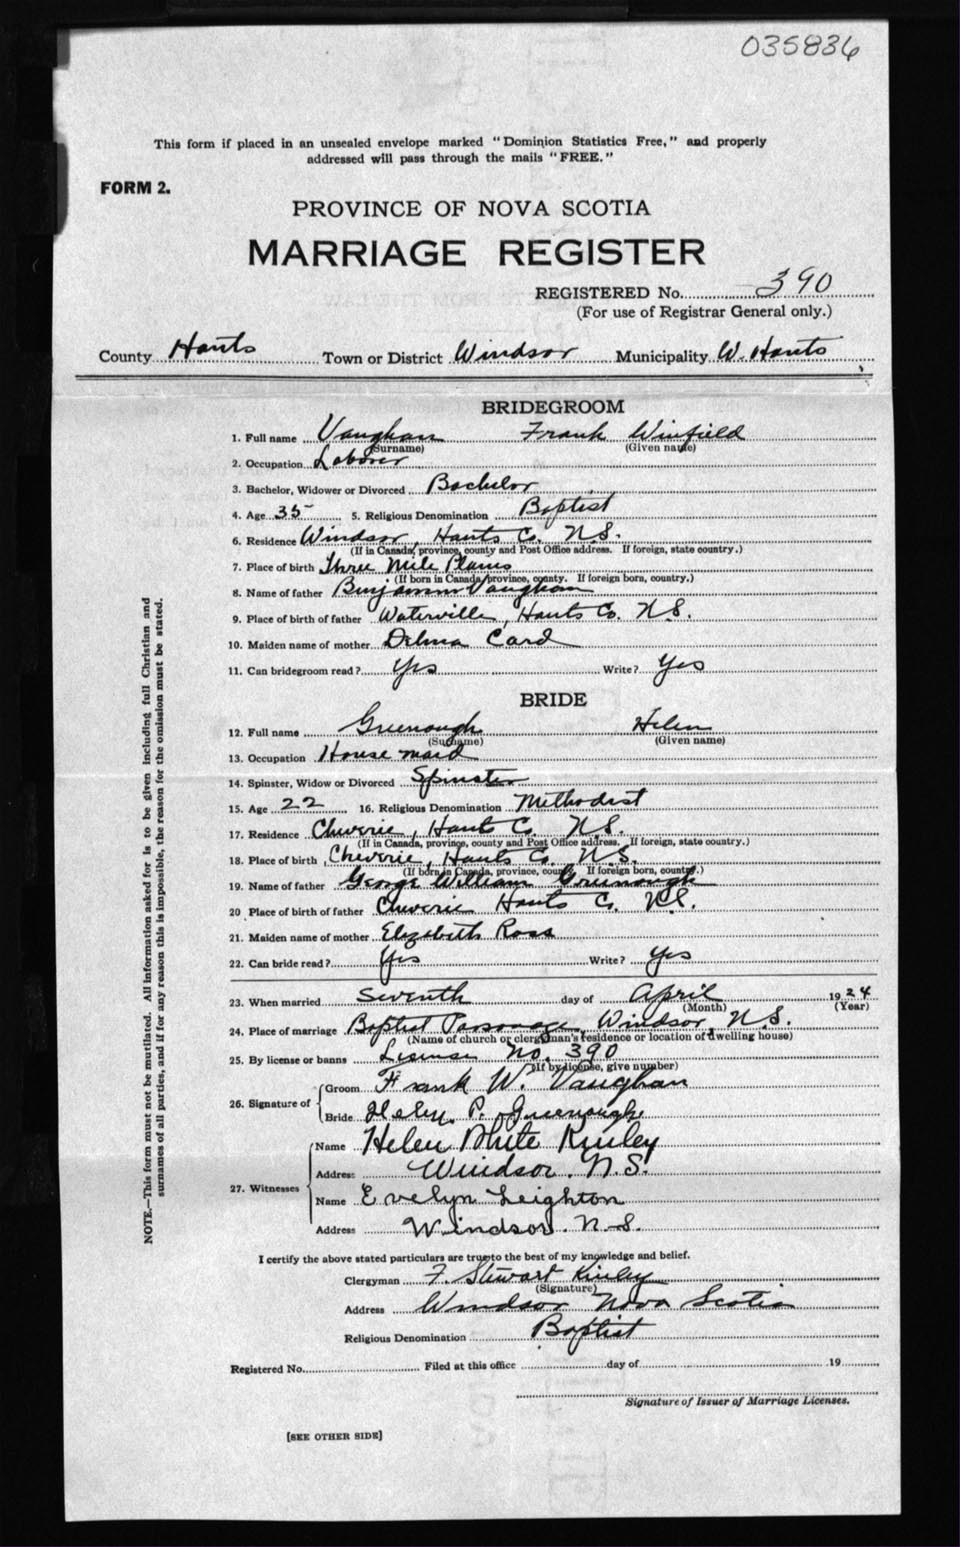 035836
This form if placed in an unsealed envelope marked "Dominion Statistics Free," and properly
addressed will pass through the mails "FREE."
FORM 2.
PROVINCE OF NOVA SCOTIA
MARRIAGE REGISTER
REGISTERED No. 390
(For use of Registrar General only.)
County Hants Town or District Windsor Municipality W. Hants
BRIDEGROOM
1. Full name Vaughan Frank Winfield
(Surname) (Given name)
2. Occupation Laborer
3. Bachelor, Widower or Divorced Bachelor
4. Age 35 5. Religious Denomination Baptist
6. Residence Windsor, Hants Co. N.S.
(If in Canada, province, county and Post Office address. If foreign, state country.)
7. Place of birth Three Mile Plains
(If born in Canada, province, county. If foreign born, country.)
8. Name of father Benjamin Vaughan
9. Place of birth of father Waterville, Hants Co. N.S.
10. Maiden name of mother Delma Card
11. Can bridegroom read? Yes Write? Yes
BRIDE
12. Full name Greenough Helen
(Surname) (Given name)
13. Occupation House maid
14. Spinster, Widow or Divorced Spinster
15. Age 22 16. Religious Denomination Methodist
17. Residence Cheverie, Hants Co. N.S.
(If in Canada, province, county and Post Office address. If foreign, state country.)
18. Place of birth Cheverie, Hants Co. N.S.
(If born in Canada, province, county. If foreign born, country.)
19. Name of father George William Greenough
20 Place of birth of father Cheverie Hants Co. N.S.
21. Maiden name of mother Elizabeth Ross
22. Can bride read? Yes Write? Yes
23. When married Seventh day of April 1924
(Month) (Year)
24. Place of marriage Baptist Parsonage, Windsor, N.S.
(Name of church or clergyman's residence or location of dwelling house)
25. By license or banns License No. 390
(If by license, give number)
26. Signature of Groom Frank W. Vaughan
Bride Helen P. Greenough
27. Witnesses Name Helen White Kinley
Address Windsor. N.S.
Name Evelyn Leighton
Address Windsor. N.S.
I certify the above stated particulars are true to the best of my knowledge and belief.
Clergyman F. Stewart Kinley
(Signature)
Address Windsor Nova Scotia
Religious Denomination Baptist
Registered No. Filed at this office day of 19
Signature of Issuer of Marriage Licenses.
[SEE OTHER SIDE]
NOTE.—This form must not be mutilated. All information asked for is to be given including full Christian and
surnames of all parties, and if for any reason this is impossible, the reason for the omission must be stated.